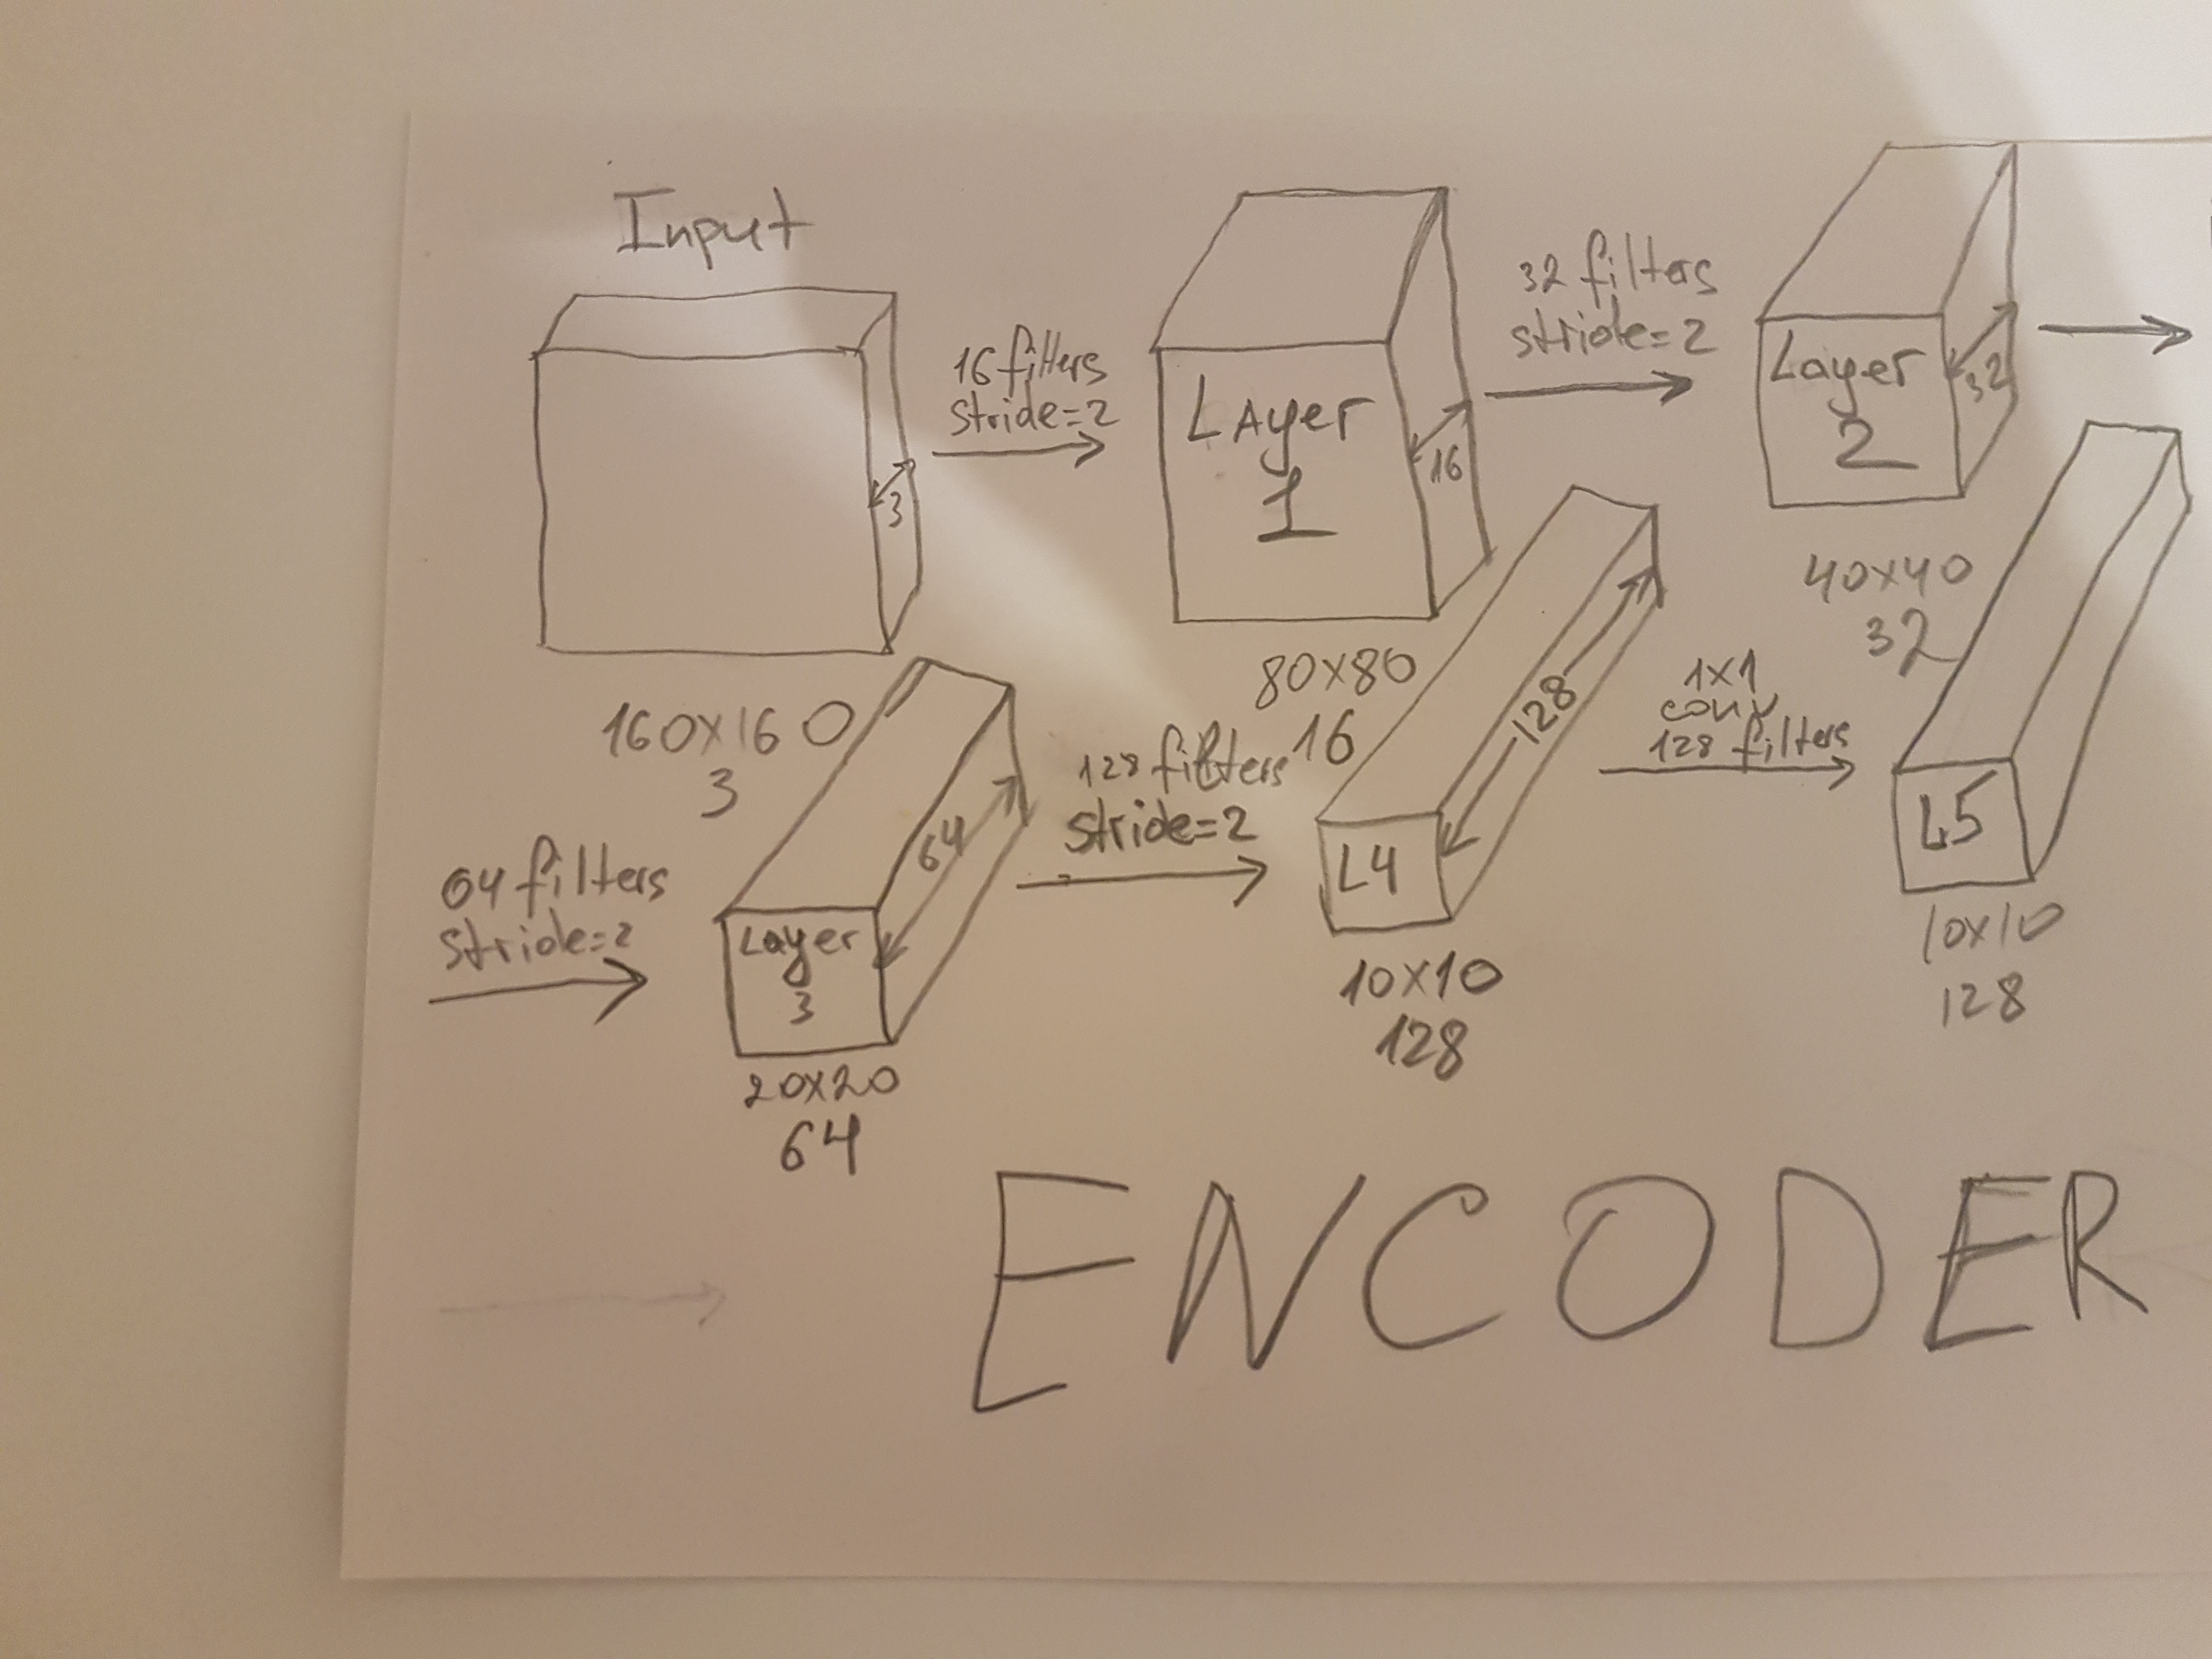 Input
3
160x160
3
16 filters
stride=2
LAyer
1
16
80x80
16
32 filters
stride=2
Layer
2
32
40x40
32
64 filters
stride=2
Layer
3
64
20x20
64
128 filters
stride=2
L4
128
10x10
128
1x1
conv
128 filters
L5
10x10
128
ENCODER